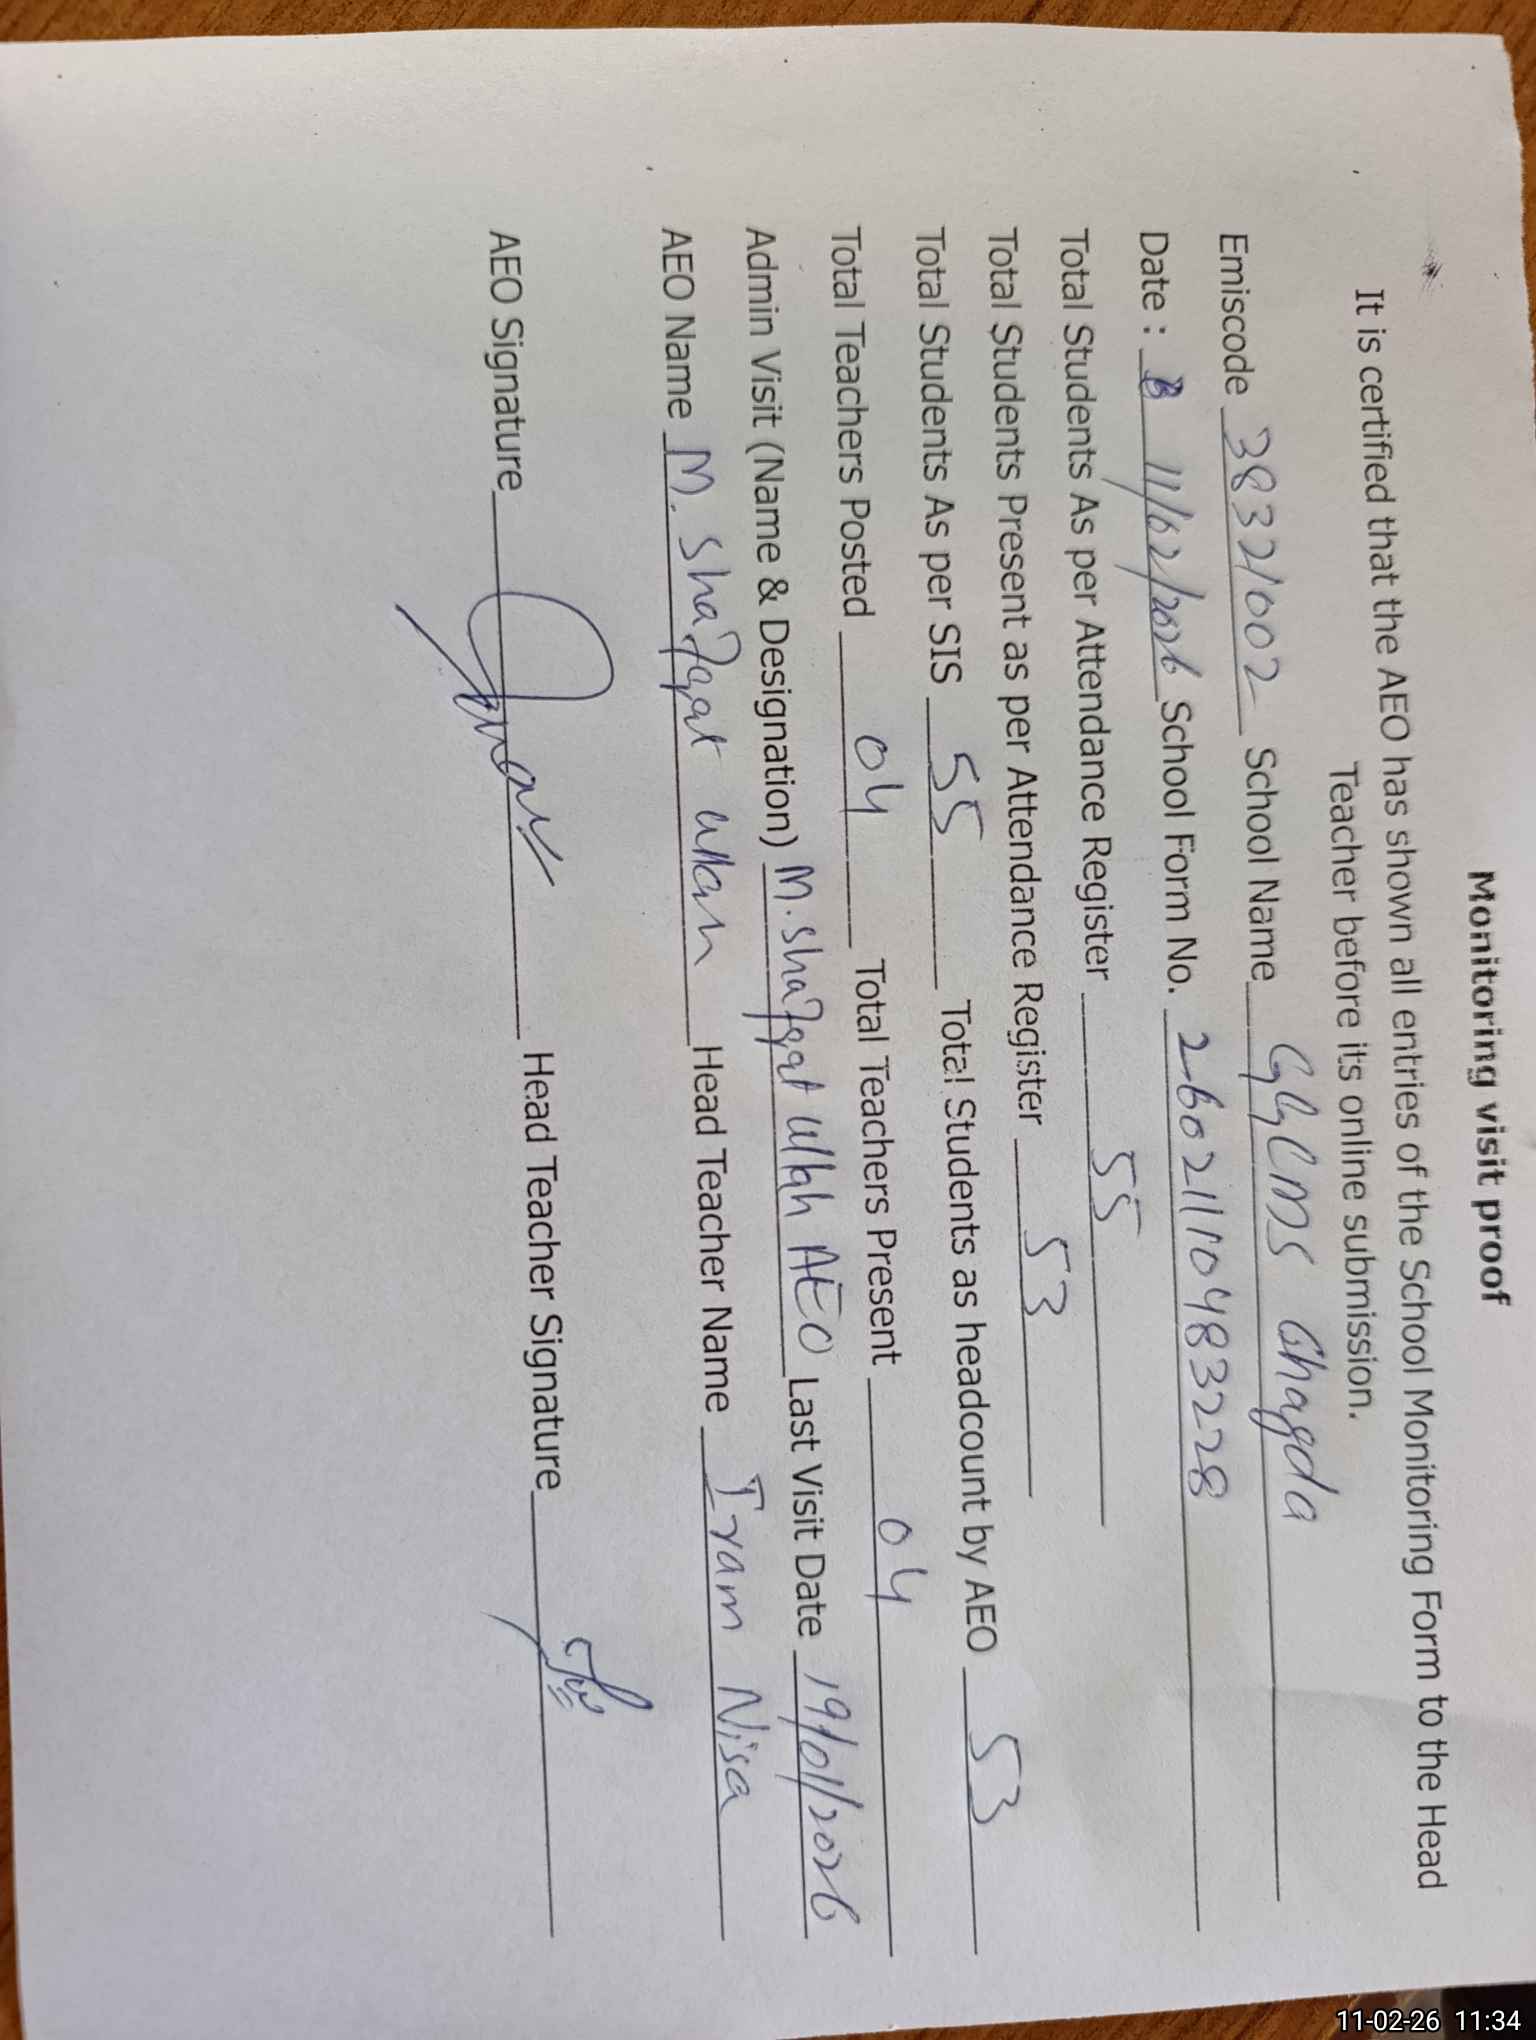 Monitoring visit proof
It is certified that the AEO has shown all entries of the School Monitoring Form to the Head
Teacher before its online submission.
Emiscode 38321002 School Name GGCMS Chagda
Date : 11/02/2026 School Form No. 26021110483228
Total Students As per Attendance Register 55
Total Students Present as per Attendance Register 53
Total Students As per SIS 55 Total Students as headcount by AEO 53
Total Teachers Posted 04 Total Teachers Present 04
Admin Visit (Name & Designation) M. Shafqat Ullah AEO Last Visit Date 19/01/2026
AEO Name M. Shafqat Ullah Head Teacher Name Iram Nisa
AEO Signature Head Teacher Signature
11-02-26 11:34